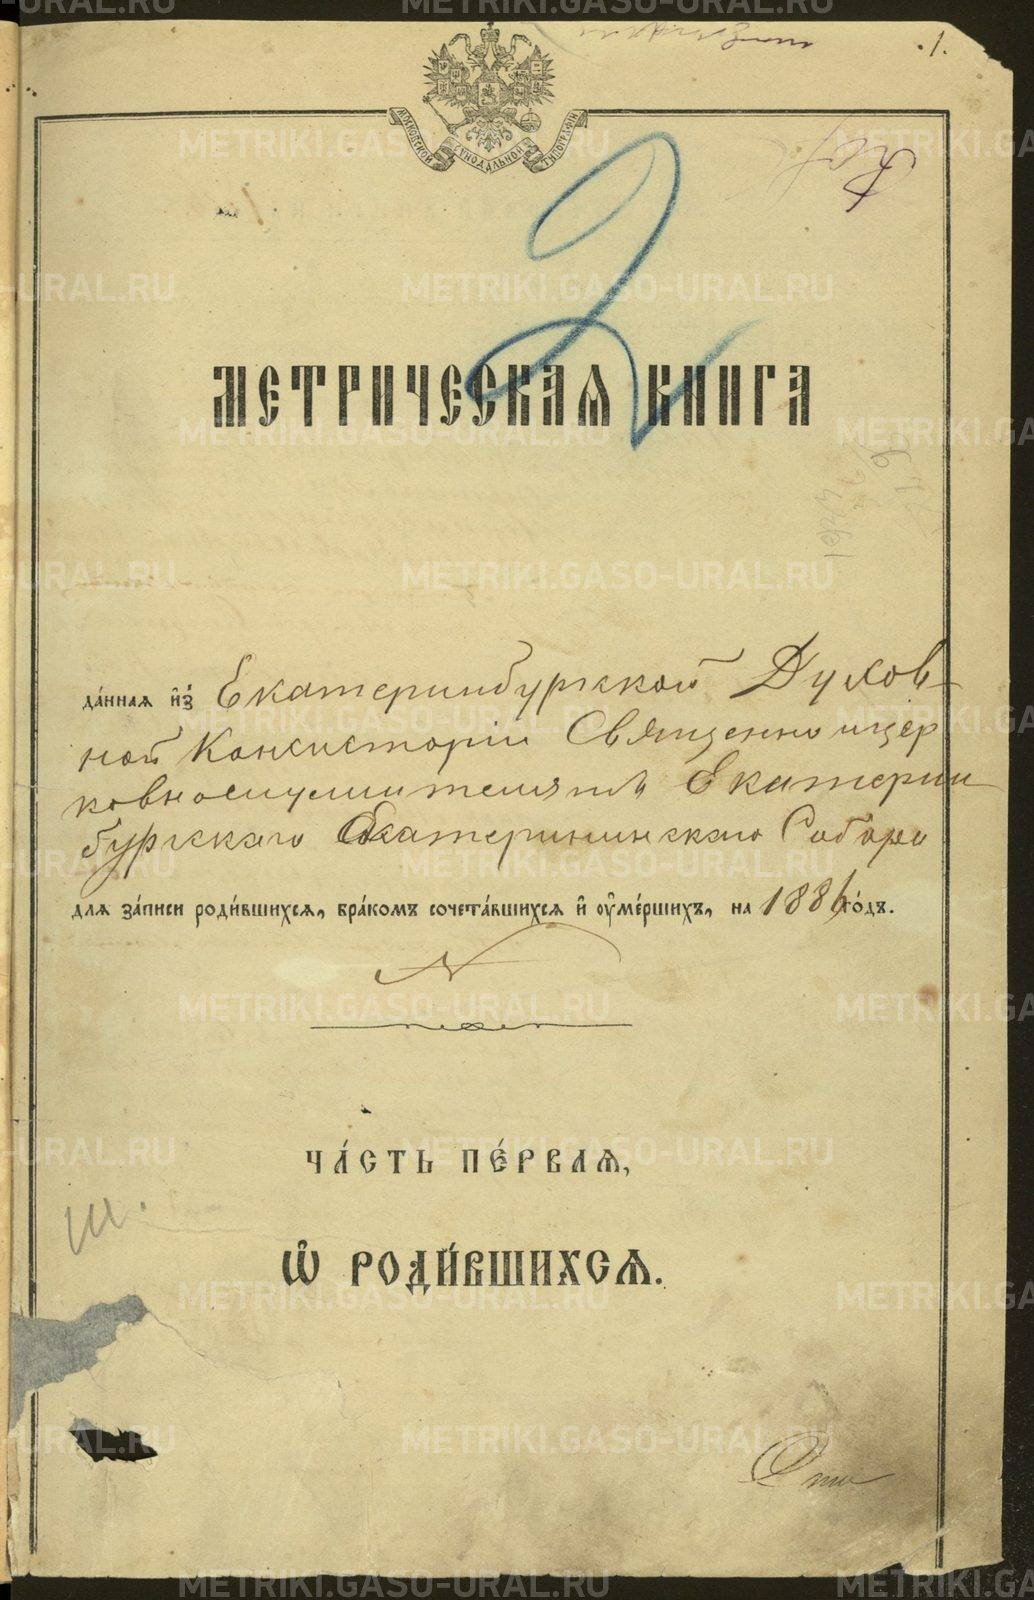 1.
МОСКОВСКОЙ СѴНОДАЛЬНОЙ ТИПОГРАФІИ
2
МЕТРИЧЕСКАѦ КНИГА
да́ннаѧ и҆з̾ Екатеринбургской Духов-
ной Консисторіи Священно и цер
ковнослужителямъ Екатерин
бургскаго Екатерининскаго Собора
длѧ за́писи роди́вшихсѧ, бра́комъ сочета́вшихсѧ и҆ ᲂу҆ме́ршихъ, на 1886 го́дъ.
ЧА́СТЬ ПЕ́РВАѦ,
Ѡ҆ РОДИ́ВШИХСѦ.
METRIKI.GASO-URAL.RU